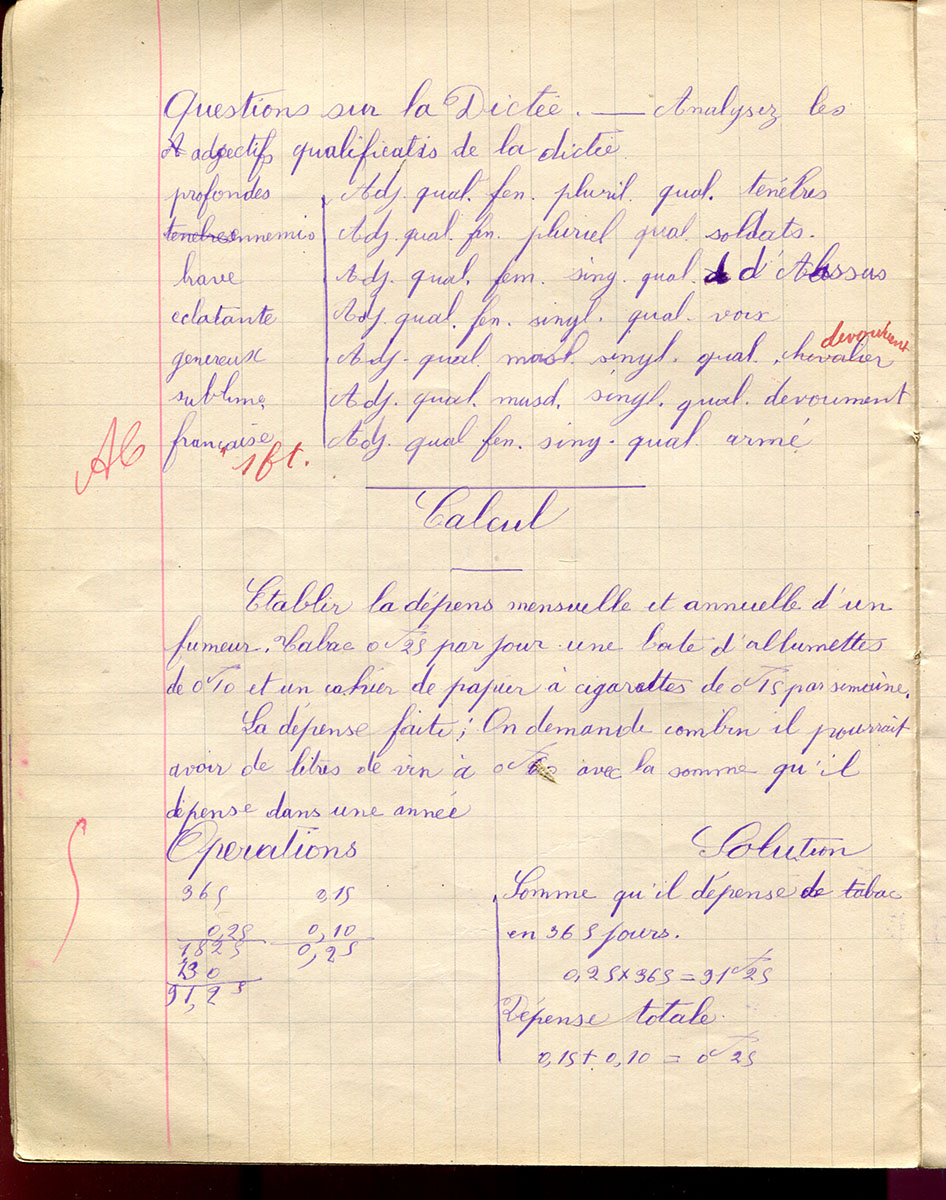 Questions sur la Dictée. — Analysez les
adjectifs qualificatis de la dictée
profondes Adj. qual. fen. pluril. qual. tenébres
tenebres ennemis Adj. qual. fin. pluriel qual soldats.
have Adj. qual. fem. sing. qual. d'Assas
eclatante Adj. qual. fen. singl. qual. voix
devoument
genereux Adj. qual masl singl. qual. chevalier
sublime, Adj. qual. masd, singl. qual. devoument
française Adj. qual fen. sing. qual. armé
AB 1 ft.
Calcul
Etablir la dépens mensuelle et annuelle d'un
fumeur. Tabac 0f25 par jour une boite d'allumettes
de 0f10 et un cahier de papier à cigarettes de 0f15 par semaine.
La dépense faite; On demande combin il pourrait
avoir de litres de vin à avec la somme qu'il
dépense dans une année
Operations Solution
365 0,15 Somme qu'il dépense de tabac
0,25 0,10 en 365 jours.
1825 0,25
730 0,25x365=91f25
91,25 Dépense totale.
0,15+0,10 = 0f25